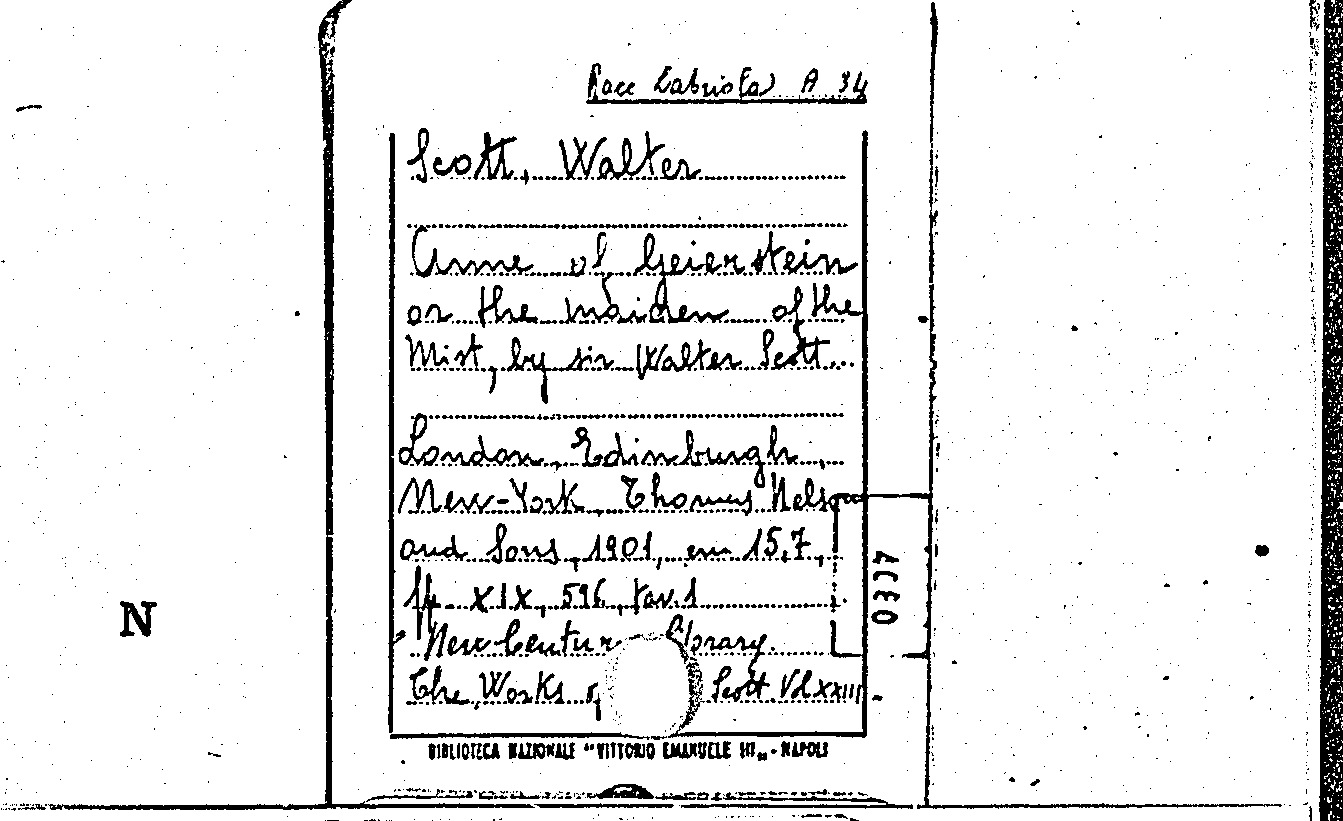 Racc Labriola A 34
Scott, Walter
Anne of Geierstein
or the maiden of the
Mist, by sir Walter Scott...
London, Edinburgh,
New-York, Thomas Nelson
and Sons, 1901, cm 15,7,
pp. XIX, 596, tav. 1
New Century Library.
The Works Scott. Vol XXIII
BIBLIOTECA NAZIONALE "VITTORIO EMANUELE III„ - NAPOLI
N